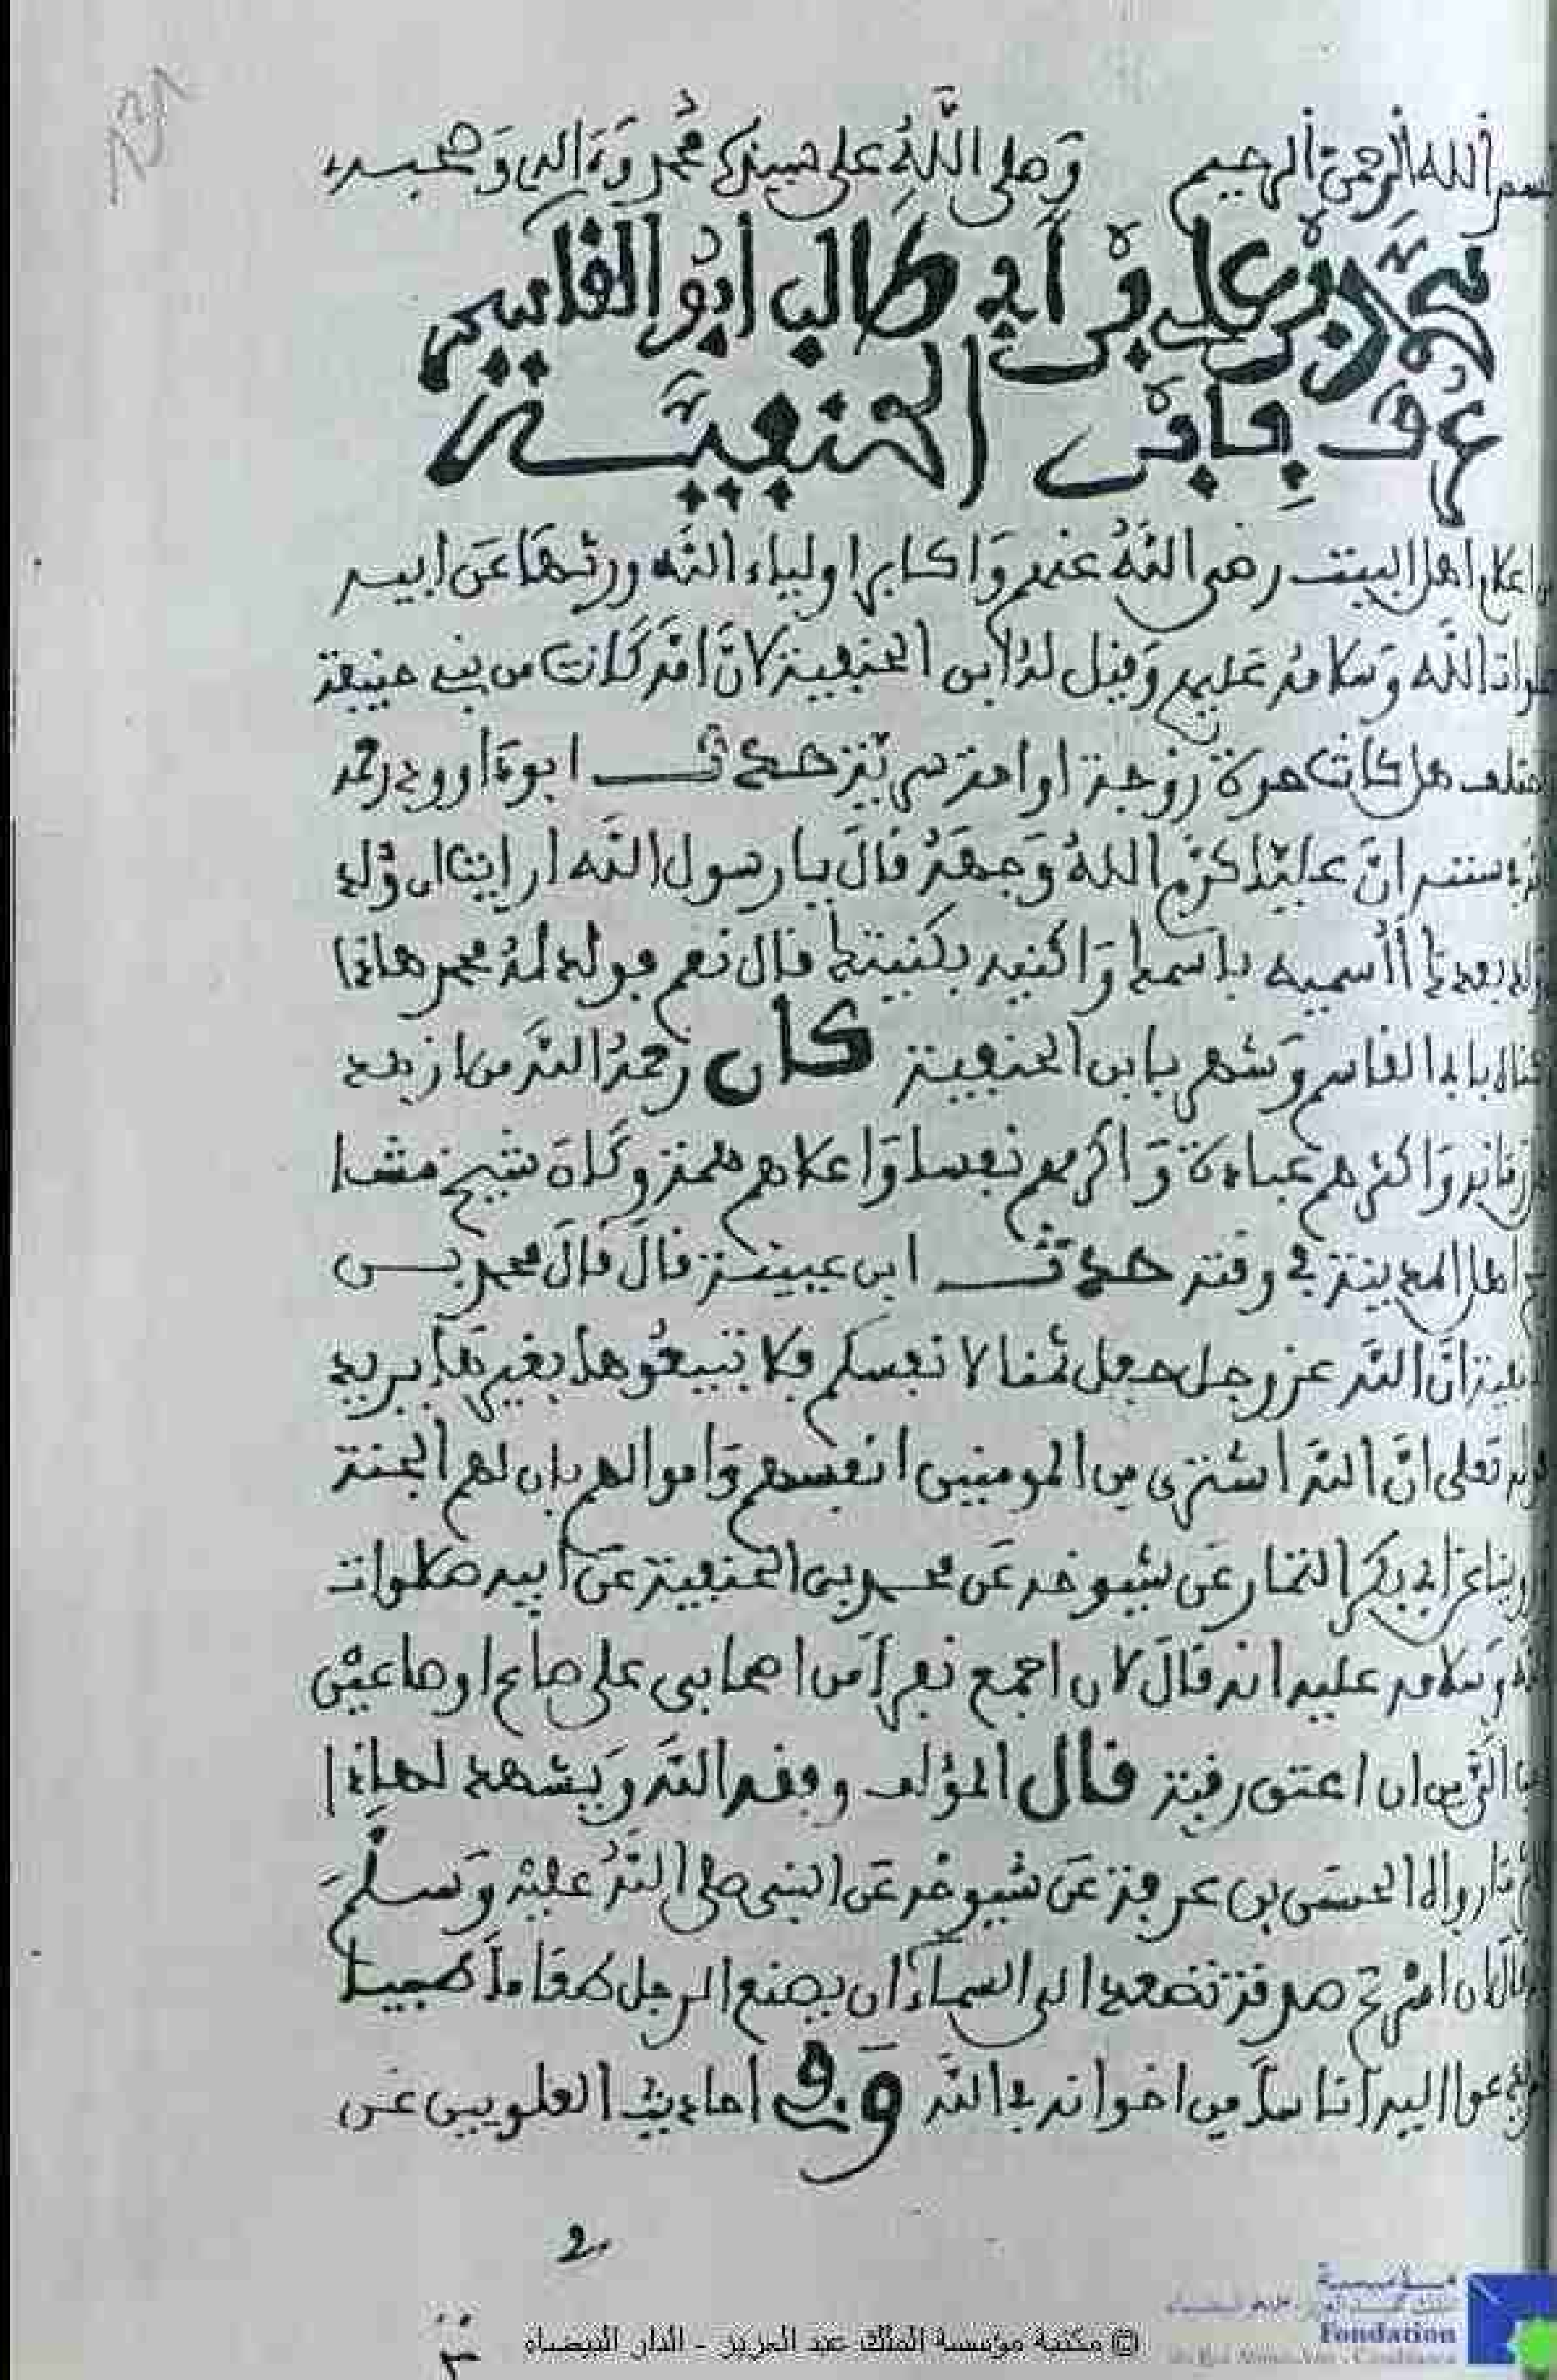 بسم الله الرحمن الرحيم وصلى الله على سيدنا محمد وءاله وصحبه
محمد بن علي بن أبي طالب أبو القاسم
عرف بابن الحنفية
اعلام اهل البيت رضي الله عنهم وَاكابر اولياء الله ورثها عَن ابيه
صلوات الله وَسلامه عَليهم وَقيل لهُ ابن الحنفية لانَّ امَّه كَانت من بني حنيفة
اختلف هل كانت حرة زوجة او امة سرية حدث ابو داوود رحمه
الله بسنده انَّ عليّا كرَّم اللهُ وَجهَهُ قالَ يا رسول الله ارايت ان وُلد
ولد بعدك أأسميه باسمك وَاكنيه بكنيتك قال نعم فولد لهُ محمد هاذا
كناه بابي القاسم وَشهر بابن الحنفية كان رَحمهُ اللَّه من ازهد
اهل زمانه وَاكثرهم عبادة وَاكرمهم نفسا وَاعلاهم همة وكَانَ شيخ مشا
يخ اهل المدينة في وقته حدث ابن عيينة قالَ قَالَ محمد بن
الحنفية انَّ اللَّه عز وجل جعل ثمنا لانفسكم فلا تبيعُوها بغيرهَا يريد
قوله تَعلى انَّ اللَّه اشترى من المومنين انفسهم وَاموالهم بان لهم الجنة
وروينا عَن ابي بكر التمار عَن شيوخه عَن محمد بن الحنفية عَن أبيه صلوات
الله وَسلامه عليه انه قالَ لان اجمع نفرا مَن اصحابي على صاع او صاعين
احب الي من ان اعتق رقبة قال المؤلف وفقه اللَّه وَيشهد لهاذا
الاثر مَا رواه الحسَن بن عرفة عَن شيوخه عَن النبي صلى اللَّهُ عليْه وَسلَّمَ
قالَ ان اسْرع صدقة تصعد الى السماءِ ان يصنع الرجل طعَاماً طيبا
ويدعوا اليه أناساً من اخوانه في اللَّه وَفي احاديث العلويين عَن
2
© مكتبة مؤسسة الملك عبد العزيز - الدار البيضاء
Fondation